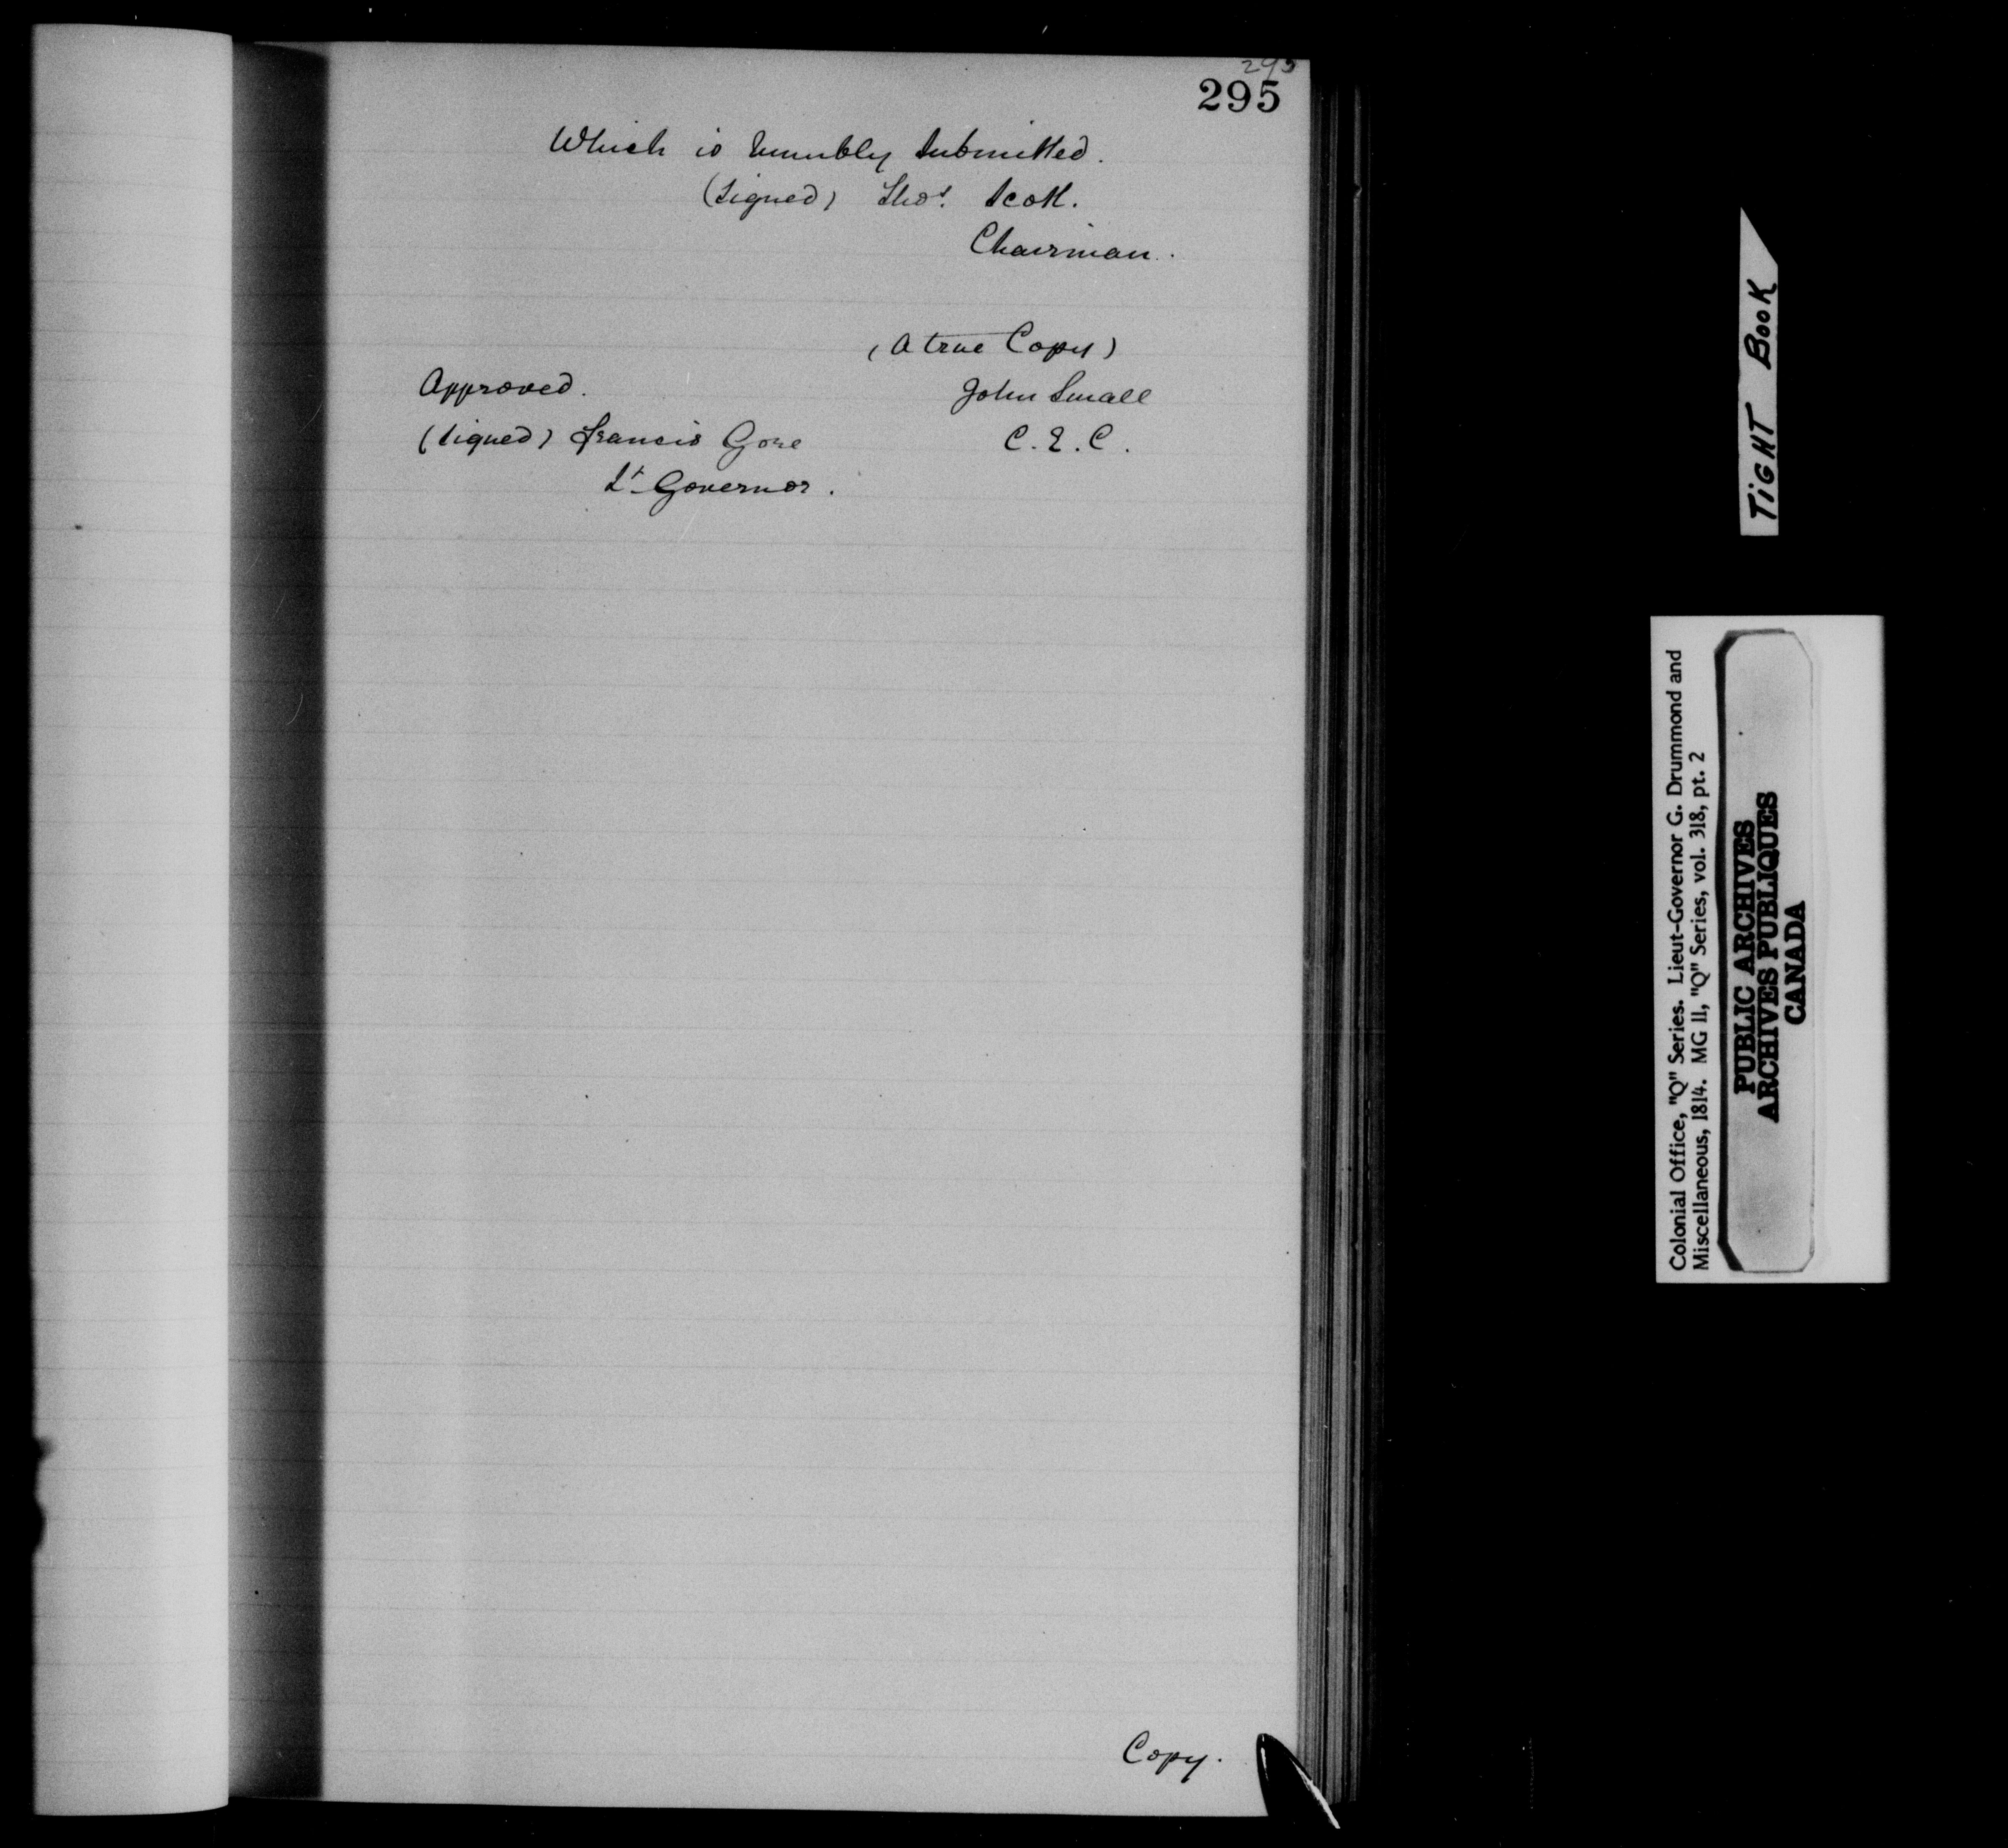 295
295
Which is humbly submitted.
(signed) Thos. Scott.
Chairman.
(A true Copy)
Approved.
John Small
(signed) Francis Gore
C. E. C.
Lt Governor.
Copy.
TiGHT BooK
Colonial Office, "Q" Series. Lieut-Governor G. Drummond and
Miscellaneous, 1814. MG 11, "Q" Series, vol. 318, pt. 2
PUBLIC ARCHIVES
ARCHIVES PUBLIQUES
CANADA